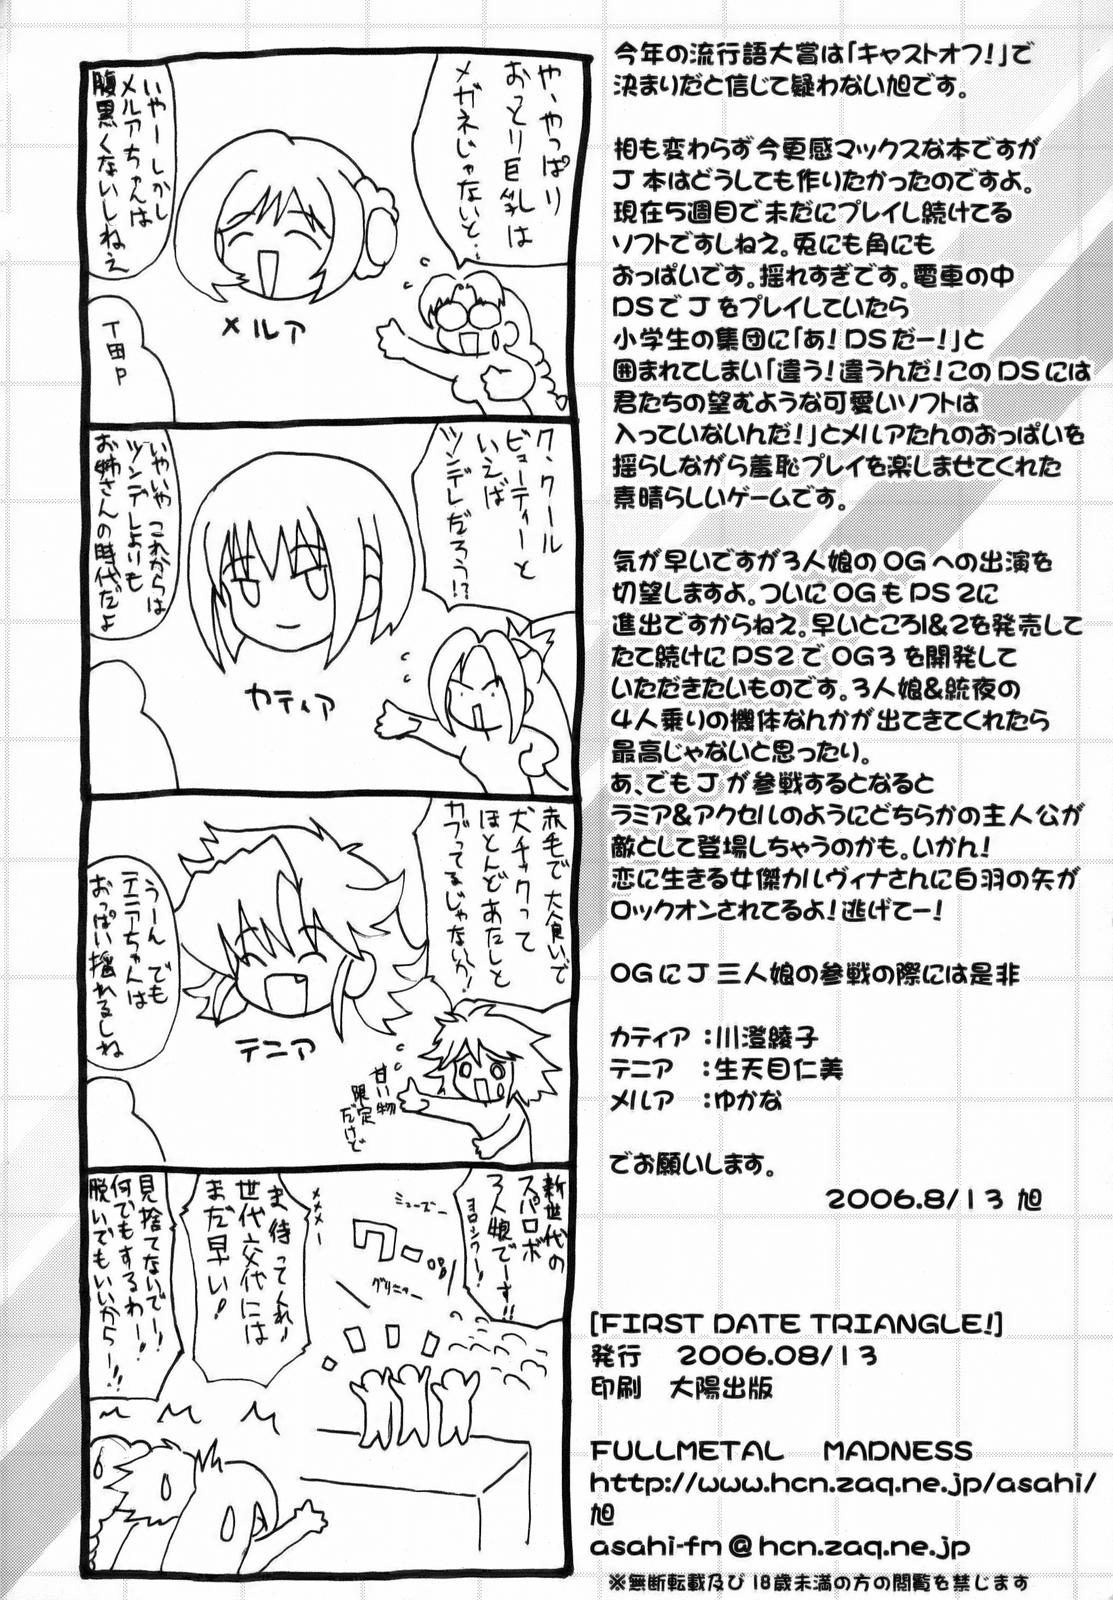 や、やっぱり
おっとり巨乳は
メガネじゃないと…
いやーしかし
メルアちゃんは
腹黒くないしねえ
メルア
T田P
ク、クール
ビューティーと
いえば
ツンデレだろう!?
いやいやこれからは
ツンデレよりも
お姉さんの時代だよ
カティア
赤毛で大食いで
犬チックって
ほとんどあたしと
カブってるじゃないか!
うーん でも
テニアちゃんは
おっぱい揺れるしね
テニア
甘い物
限定
だけど
新世代の
スパロボ
3人娘でーす!!
ヨロシクー!
ま、待ってくれ!
世代交代には
まだ早い!
見捨てないでー!
何でもするわー!
脱いでもいいからー!!
今年の流行語大賞は「キャストオフ!」で
決まりだと信じて疑わない旭です。
相も変わらず今更感マックスな本ですが
J本はどうしても作りたかったのですよ。
現在5週目で未だにプレイし続けてる
ソフトですしねえ。兎にも角にも
おっぱいです。揺れすぎです。電車の中
DSでJをプレイしていたら
小学生の集団に「あ!DSだー!」と
囲まれてしまい「違う!違うんだ!このDSには
君たちの望むような可愛いソフトは
入っていないんだ!」とメルアたんのおっぱいを
揺らしながら羞恥プレイを楽しませてくれた
素晴らしいゲームです。
気が早いですが3人娘のOGへの出演を
切望しますよ。ついにOGもPS2に
進出ですからねえ。早いところ1&2を発売して
たて続けにPS2でOG3を開発して
いただきたいものです。3人娘&統夜の
4人乗りの機体なんかが出てきてくれたら
最高じゃないと思ったり。
あ、でもJが参戦するとなると
ラミア&アクセルのようにどちらかの主人公が
敵として登場しちゃうのかも。いかん!
恋に生きる女傑カルヴィナさんに白羽の矢が
ロックオンされてるよ!逃げてー!
OGにJ三人娘の参戦の際には是非
カティア:川澄綾子
テニア :生天目仁美
メルア :ゆかな
でお願いします。
2006.8/13 旭
[FIRST DATE TRIANGLE!]
発行 2006.08/13
印刷 大陽出版
FULLMETAL MADNESS
http://www.hcn.zaq.ne.jp/asahi/
旭
asahi-fm@hcn.zaq.ne.jp
※無断転載及び18歳未満の方の閲覧を禁じます